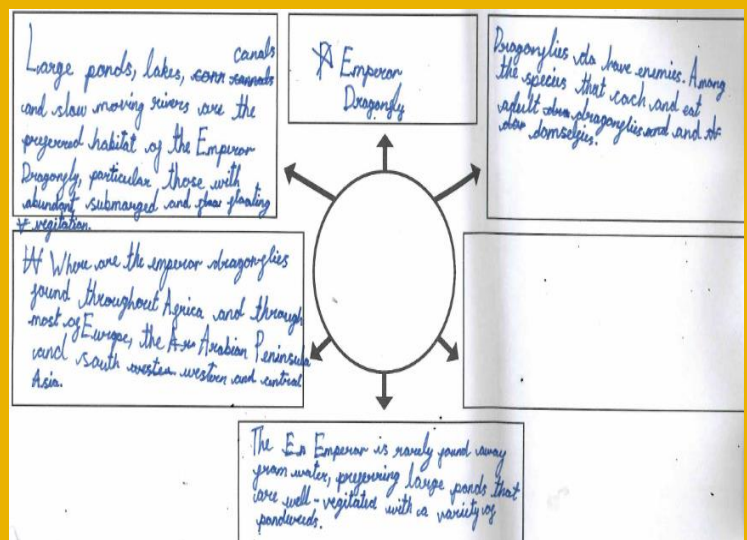 Large ponds, lakes, canals
and slow moving rivers are the
preferred habitat of the Emperor
Dragonfly, particular those with
abundant, submarged and floating
vegitation.
Emperor
Dragonfly
Dragonflies do have enemies. Among
the species that cach and eat
adult dragonflies and
domselfies.
Where are the emperor dragonflies
found throughout Africa and through
most of Europe, the Arabian Peninsula
and south western and central
Asia.
The Emperor is rarely found away
from water, preferring large ponds that
are well-vegitated with a variety of
pondweeds.